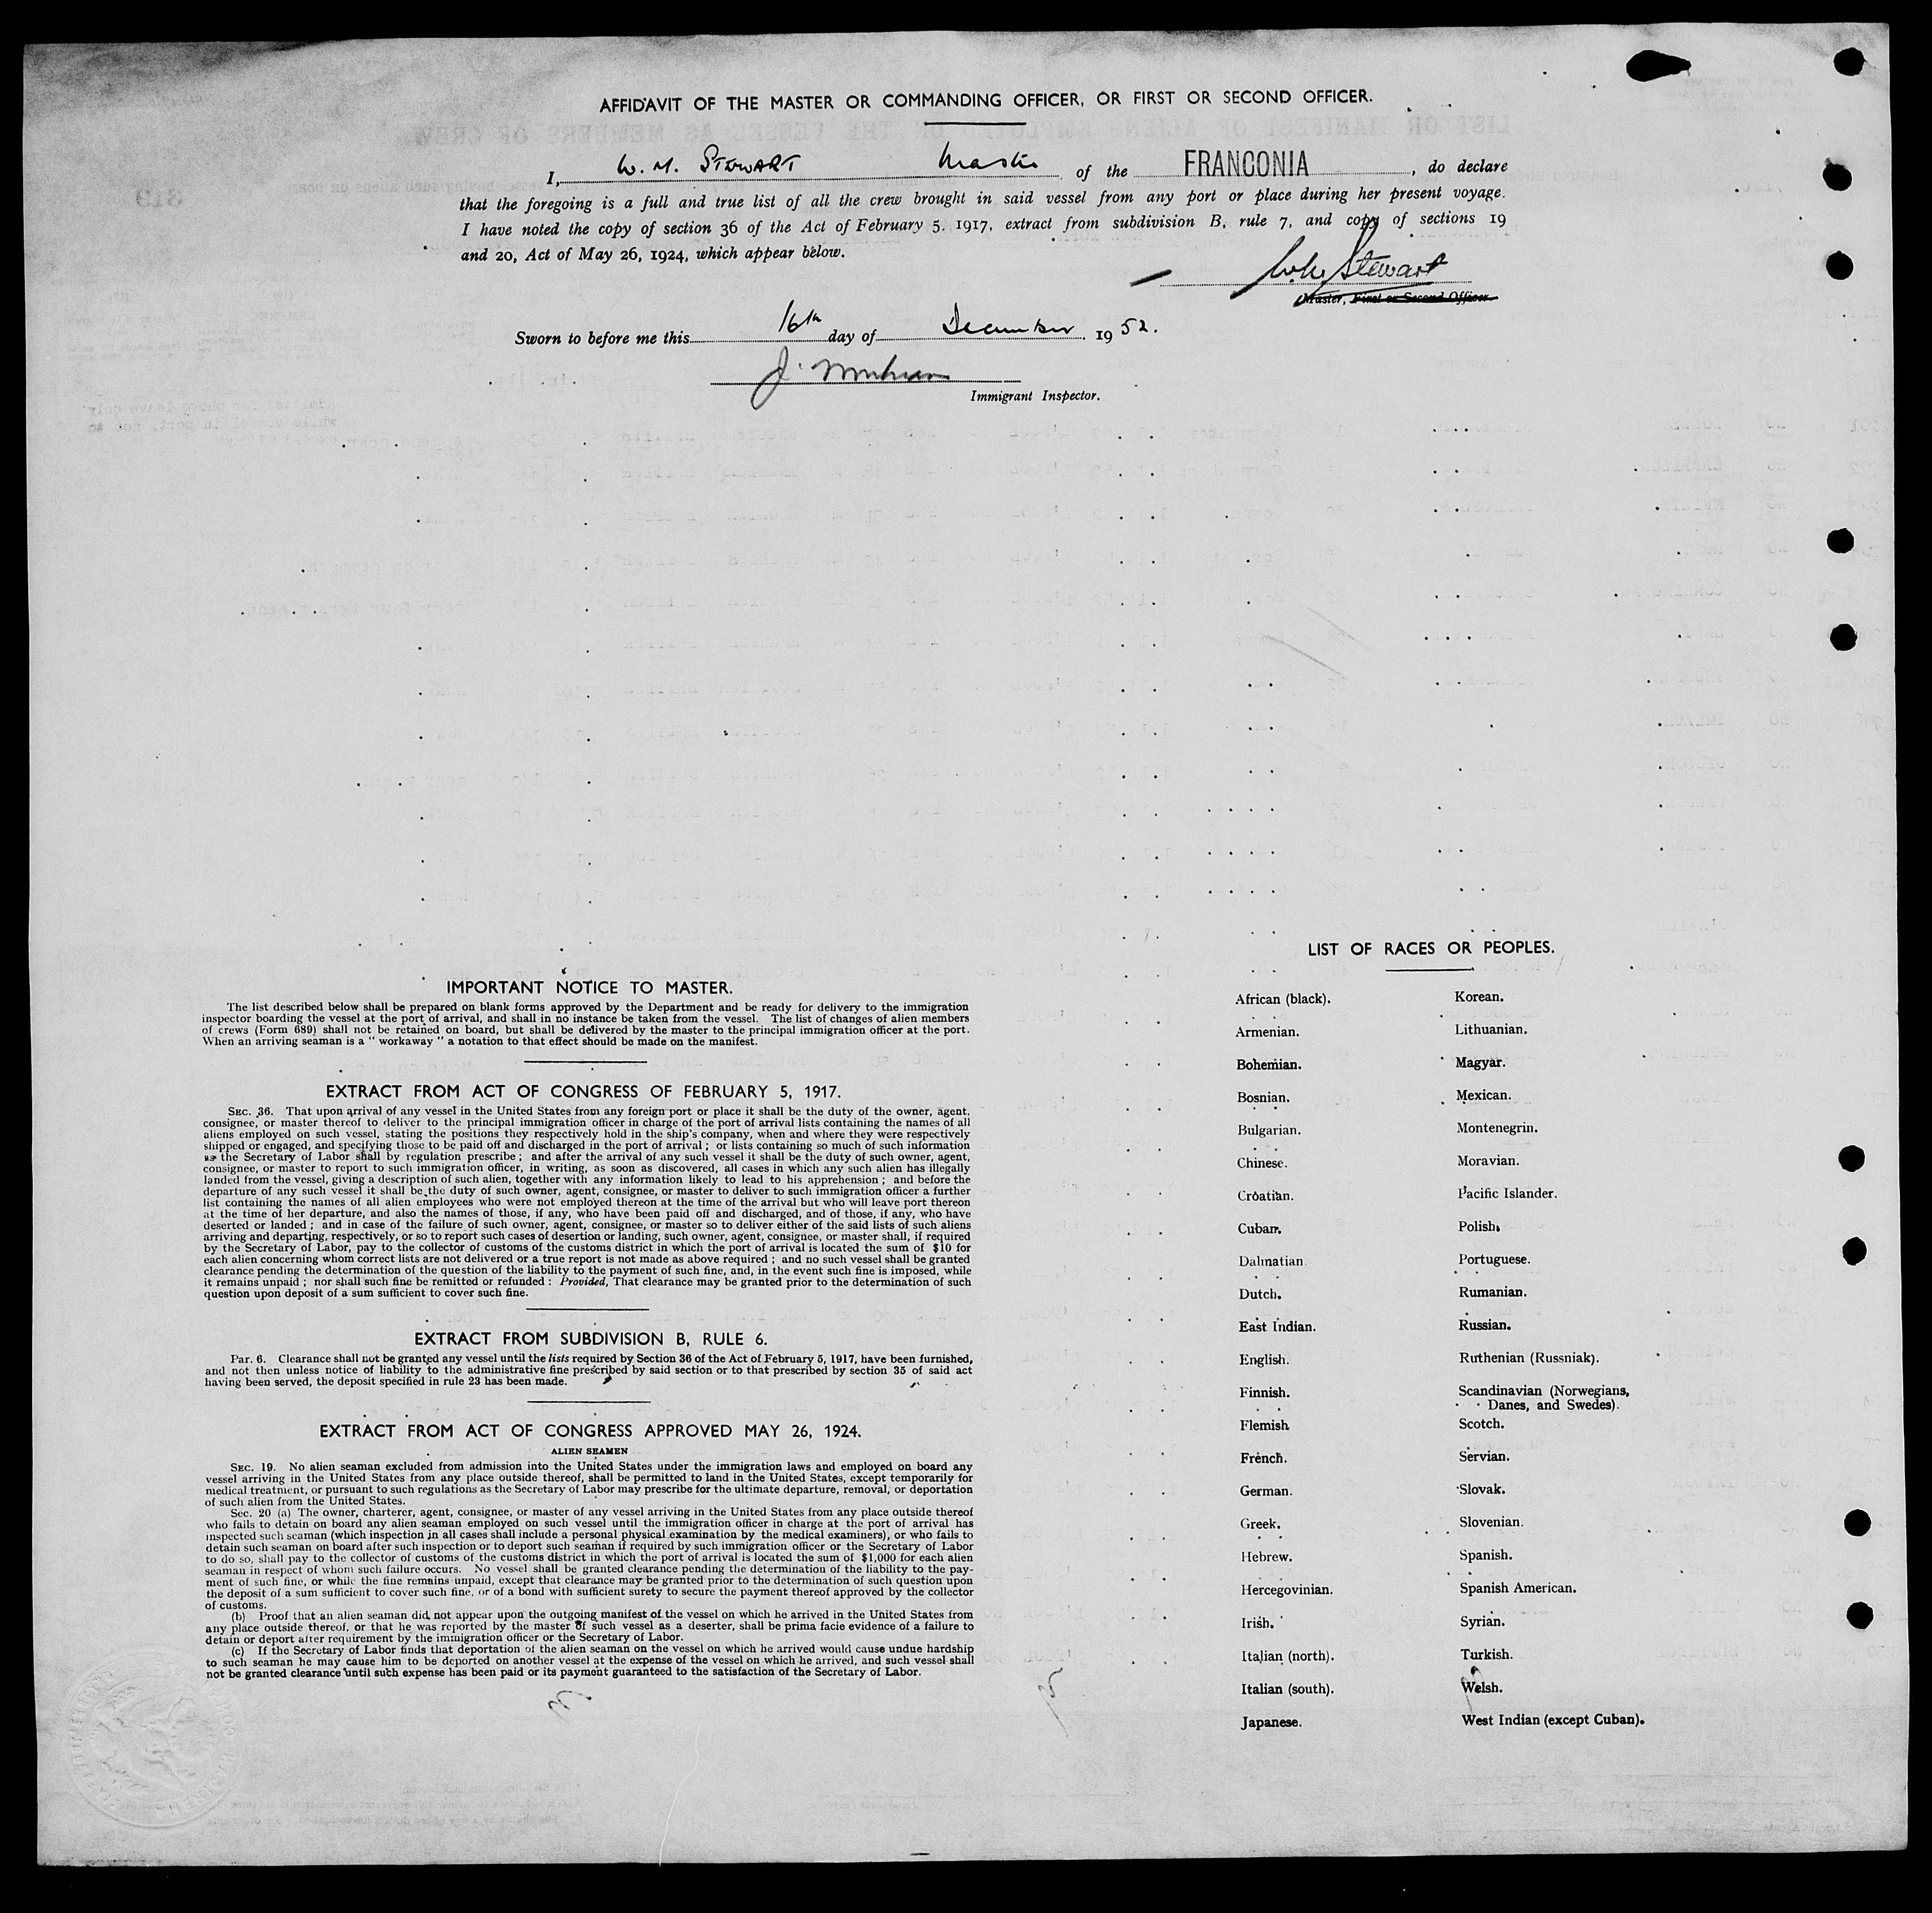 AFFIDAVIT OF THE MASTER OR COMMANDING OFFICER, OR FIRST OR SECOND OFFICER.
I, W. M. STEWART Master of the FRANCONIA, do declare
that the foregoing is a full and true list of all the crew brought in said vessel from any port or place during her present voyage.
I have noted the copy of section 36 of the Act of February 5. 1917, extract from subdivision B, rule 7, and copy of sections 19
and 20, Act of May 26, 1924, which appear below.
Stewart
Master, First or Second Officer.
Sworn to before me this 16th day of December. 1952.
J.
Immigrant Inspector.
IMPORTANT NOTICE TO MASTER.
The list described below shall be prepared on blank forms approved by the Department and be ready for delivery to the immigration
inspector boarding the vessel at the port of arrival, and shall in no instance be taken from the vessel. The list of changes of alien members
of crews (Form 689) shall not be retained on board, but shall be delivered by the master to the principal immigration officer at the port.
When an arriving seaman is a " workaway " a notation to that effect should be made on the manifest.
EXTRACT FROM ACT OF CONGRESS OF FEBRUARY 5, 1917.
SEC. 36. That upon arrival of any vessel in the United States from any foreign port or place it shall be the duty of the owner, agent,
consignee, or master thereof to deliver to the principal immigration officer in charge of the port of arrival lists containing the names of all
aliens employed on such vessel, stating the positions they respectively hold in the ship's company, when and where they were respectively
shipped or engaged, and specifying those to be paid off and discharged in the port of arrival ; or lists containing so much of such information
as the Secretary of Labor shall by regulation prescribe ; and after the arrival of any such vessel it shall be the duty of such owner, agent,
consignee, or master to report to such immigration officer, in writing, as soon as discovered, all cases in which any such alien has illegally
landed from the vessel, giving a description of such alien, together with any information likely to lead to his apprehension ; and before the
departure of any such vessel it shall be the duty of such owner, agent, consignee, or master to deliver to such immigration officer a further
list containing the names of all alien employees who were not employed thereon at the time of the arrival but who will leave port thereon
at the time of her departure, and also the names of those, if any, who have been paid off and discharged, and of those, if any, who have
deserted or landed ; and in case of the failure of such owner, agent, consignee, or master so to deliver either of the said lists of such aliens
arriving and departing, respectively, or so to report such cases of desertion or landing, such owner, agent, consignee, or master shall, if required
by the Secretary of Labor, pay to the collector of customs of the customs district in which the port of arrival is located the sum of $10 for
each alien concerning whom correct lists are not delivered or a true report is not made as above required ; and no such vessel shall be granted
clearance pending the determination of the question of the liability to the payment of such fine, and, in the event such fine is imposed, while
it remains unpaid ; nor shall such fine be remitted or refunded : Provided, That clearance may be granted prior to the determination of such
question upon deposit of a sum sufficient to cover such fine.
EXTRACT FROM SUBDIVISION B, RULE 6.
Par. 6. Clearance shall not be granted any vessel until the lists required by Section 36 of the Act of February 5, 1917, have been furnished,
and not then unless notice of liability to the administrative fine prescribed by said section or to that prescribed by section 35 of said act
having been served, the deposit specified in rule 23 has been made.
EXTRACT FROM ACT OF CONGRESS APPROVED MAY 26, 1924.
ALIEN SEAMEN
SEC. 19. No alien seaman excluded from admission into the United States under the immigration laws and employed on board any
vessel arriving in the United States from any place outside thereof, shall be permitted to land in the United States, except temporarily for
medical treatment, or pursuant to such regulations as the Secretary of Labor may prescribe for the ultimate departure, removal, or deportation
of such alien from the United States.
Sec. 20 (a) The owner, charterer, agent, consignee, or master of any vessel arriving in the United States from any place outside thereof
who fails to detain on board any alien seaman employed on such vessel until the immigration officer in charge at the port of arrival has
inspected such seaman (which inspection in all cases shall include a personal physical examination by the medical examiners), or who fails to
detain such seaman on board after such inspection or to deport such seaman if required by such immigration officer or the Secretary of Labor
to do so, shall pay to the collector of customs of the customs district in which the port of arrival is located the sum of $1,000 for each alien
seaman in respect of whom such failure occurs. No vessel shall be granted clearance pending the determination of the liability to the pay-
ment of such fine, or while the fine remains unpaid, except that clearance may be granted prior to the determination of such question upon
the deposit of a sum sufficient to cover such fine, or of a bond with sufficient surety to secure the payment thereof approved by the collector
of customs.
(b) Proof that an alien seaman did not appear upon the outgoing manifest of the vessel on which he arrived in the United States from
any place outside thereof, or that he was reported by the master of such vessel as a deserter, shall be prima facie evidence of a failure to
detain or deport after requirement by the immigration officer or the Secretary of Labor.
(c) If the Secretary of Labor finds that deportation of the alien seaman on the vessel on which he arrived would cause undue hardship
to such seaman he may cause him to be deported on another vessel at the expense of the vessel on which he arrived, and such vessel shall
not be granted clearance until such expense has been paid or its payment guaranteed to the satisfaction of the Secretary of Labor.
LIST OF RACES OR PEOPLES.
African (black).
Armenian.
Bohemian.
Bosnian.
Bulgarian.
Chinese.
Croatian.
Cuban.
Dalmatian
Dutch.
East Indian.
English.
Finnish.
Flemish
French.
German.
Greek.
Hebrew.
Hercegovinian.
Irish.
Italian (north).
Italian (south).
Japanese.
Korean.
Lithuanian.
Magyar.
Mexican.
Montenegrin.
Moravian.
Pacific Islander.
Polish.
Portuguese.
Rumanian.
Russian.
Ruthenian (Russniak).
Scandinavian (Norwegians,
Danes, and Swedes).
Scotch.
Servian.
Slovak.
Slovenian.
Spanish.
Spanish American.
Syrian.
Turkish.
Welsh.
West Indian (except Cuban).